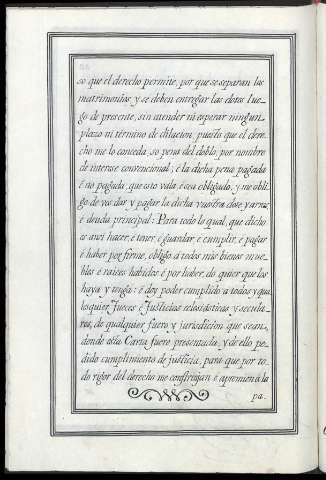 so que el derecho permite, por que se separan los
matrimonios, y se deben entregar las dotes lue-
go de presente, sin atender ni esperar ningun
plazo ni término de dilacion, puesto que el dere-
cho me lo conceda, so pena del doblo, por nombre
de interese convencional; é la dicha pena pagada
é no pagada, que esto vala, é sea obligado, y me obli-
go de vos dar y pagar la dicha vuestra dote y arras
é deuda principal: Para todo lo qual, que dicho
es ansi hacer, é tener, é guardar, é cumplir, é pagar
é haber por firme, obligo á todos mis bienes mue-
bles é raices habidos é por haber, do quier que los
haya y tenga: é doy poder cumplido a todos y qua-
lesquier Jueces é Justicias eclesiásticas y secula-
res, de qualquier fuero y jurisdicion que sean,
donde esta Carta fuere presentada, y de ello pe-
dido cumplimiento de justicia, para que por to-
do rigor del derecho me constriñan é apremien á la
pa-